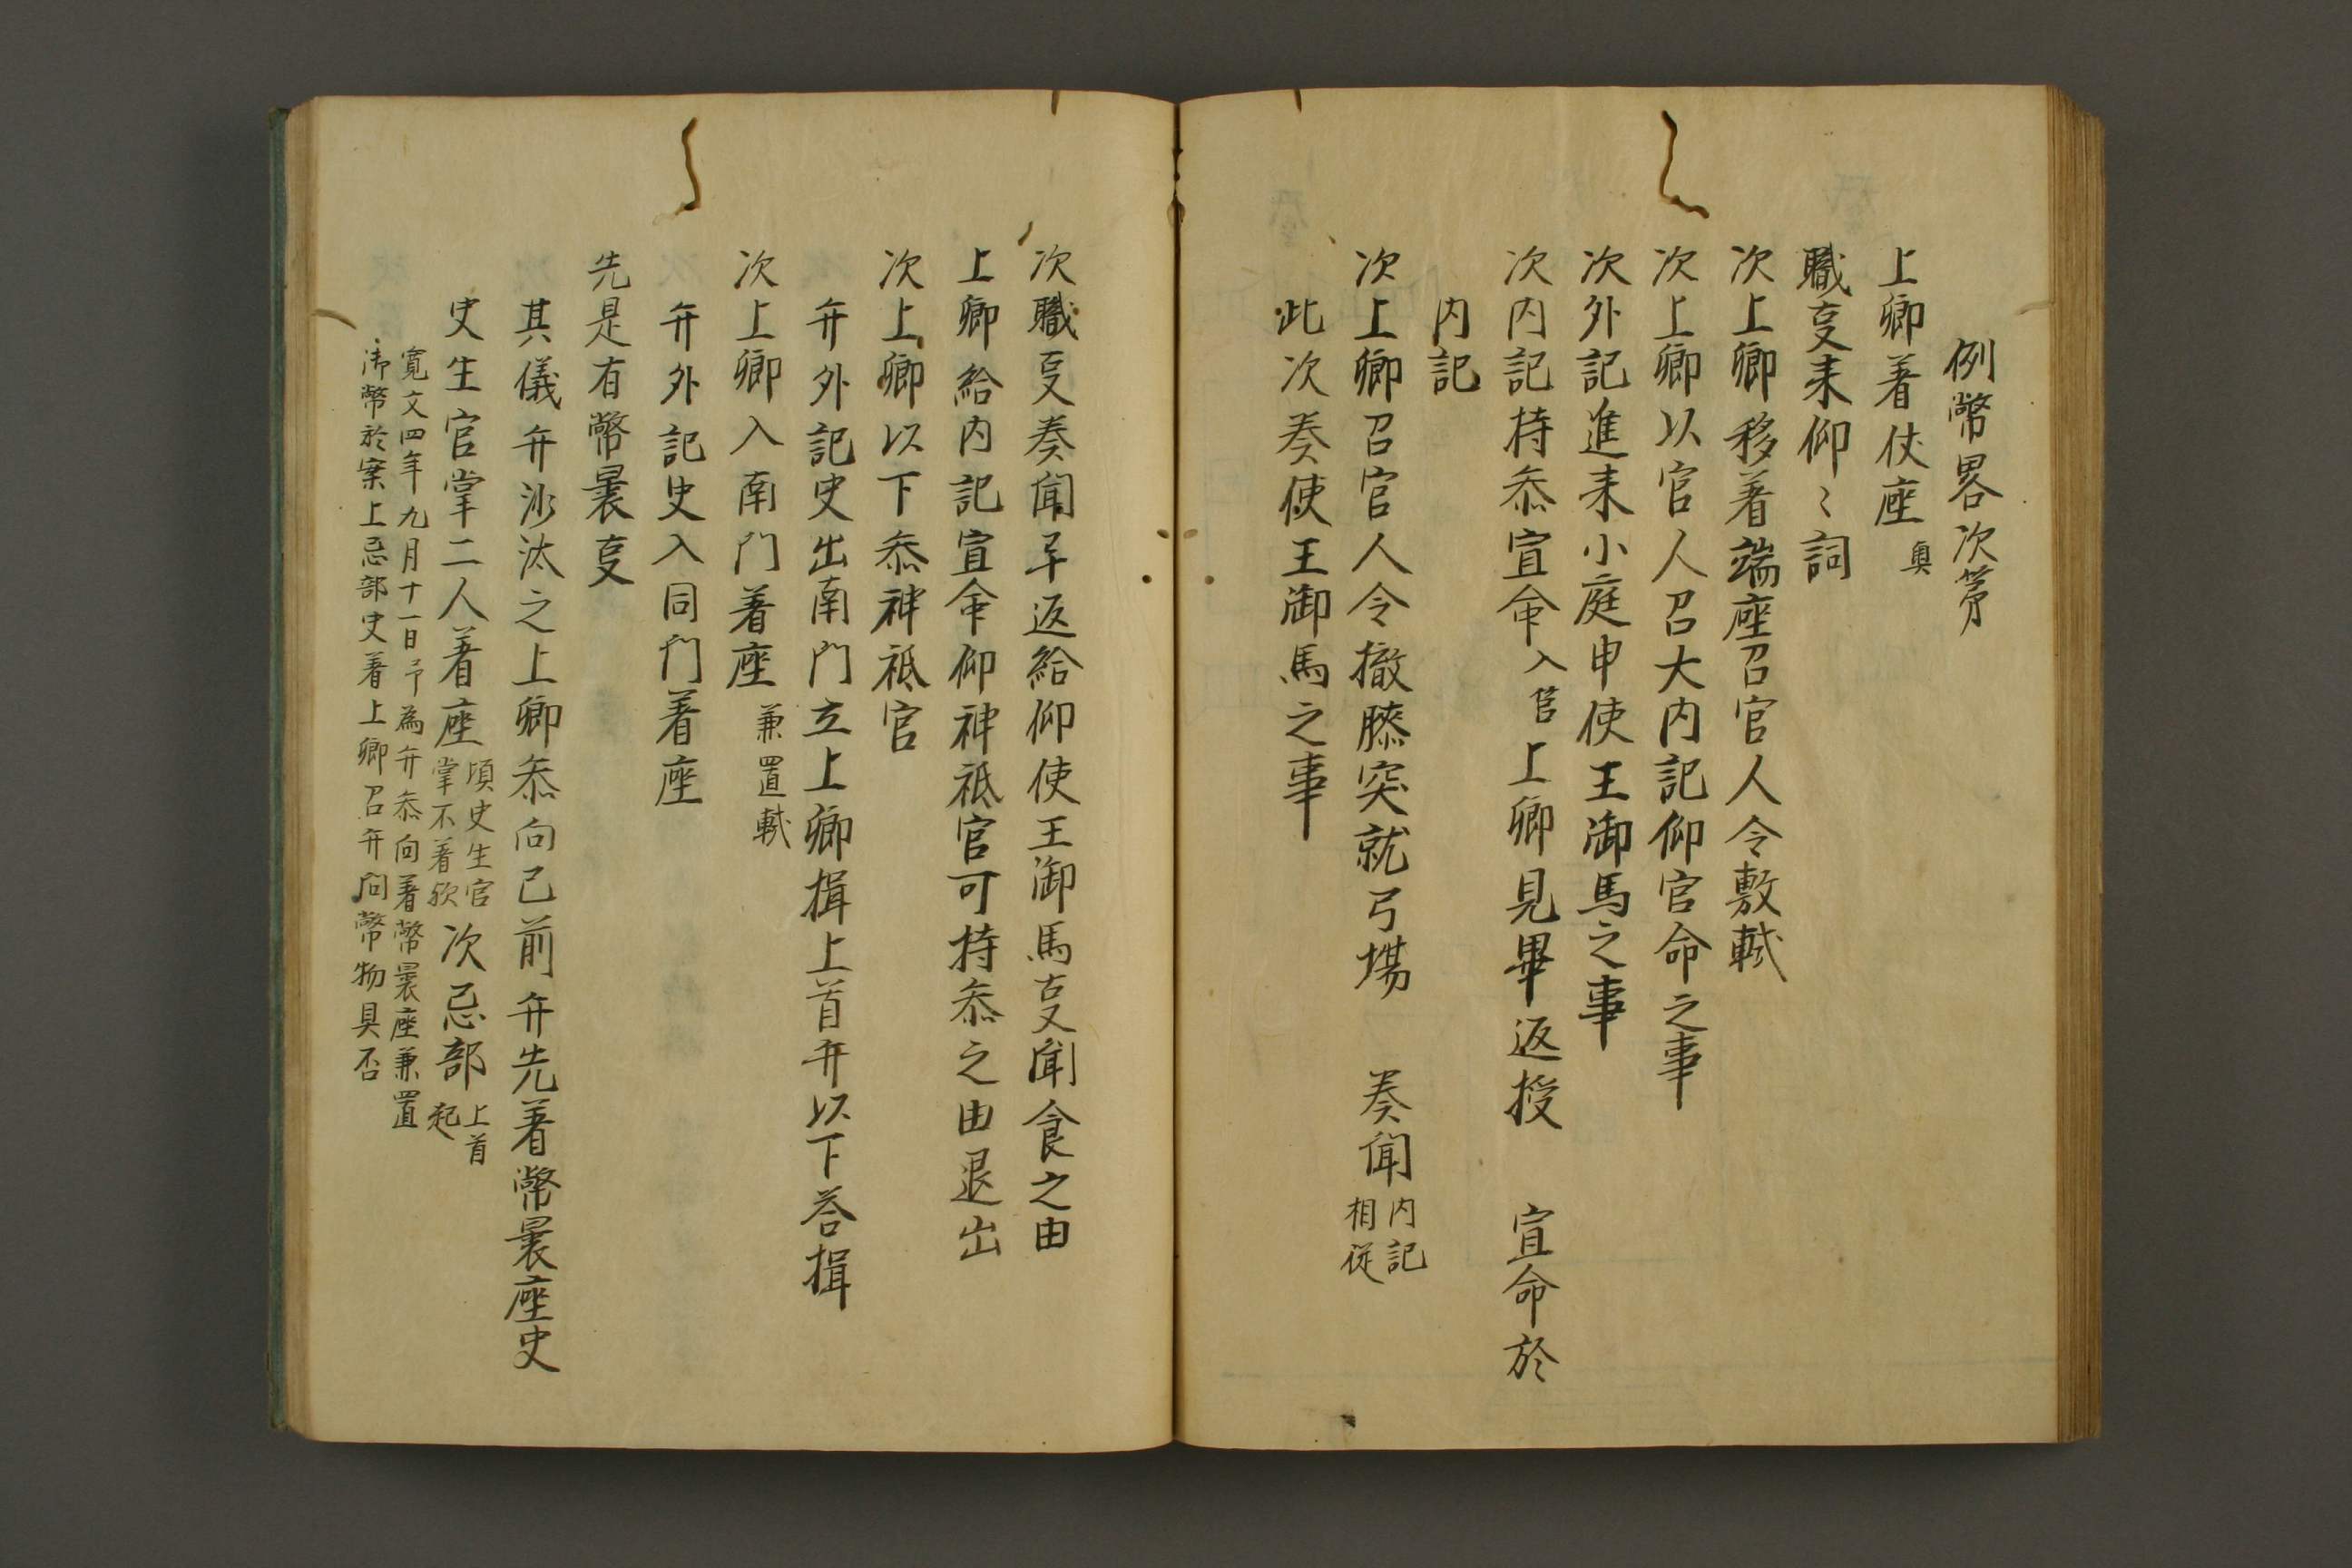 例幣畧次第
上卿着仗座奥
職事来仰〻詞
次上卿移着端座召官人令敷軾
次上卿以官人召大内記仰官命之事
次外記進来小庭申使王御馬之事
次内記持参宣命入筥上卿見畢返授　宣命於
内記
次上卿召官人令撤膝突就弓場　奏聞内記相従
此次奏使王御馬之事
次職事奏聞畢返給仰使王御馬事聞食之由
上卿給内記宣命仰神祇官可持参之由退出
次上卿以下参神祇官
弁外記史出南門立上卿揖上首弁以下答揖
次上卿入南門着座兼置軾
弁外記史入同門着座
先是有幣褁事
其儀弁沙汰之上卿参向已前弁先着幣褁座史
史生官掌二人着座頃史生官掌不着欤次忌部上首起
寛文四年九月十一日予為弁参向着幣褁座兼置
御幣於案上忌部史着上卿召弁問幣物具否